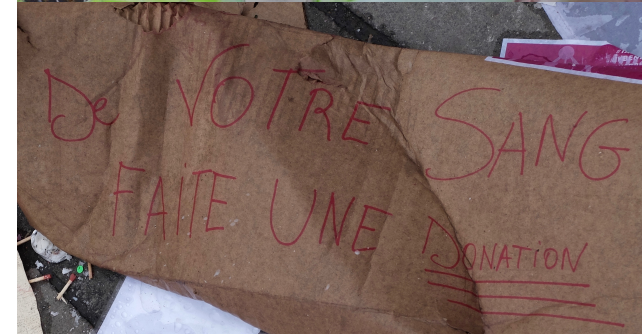 De VOTRE SANG
FAITE UNE DONATION